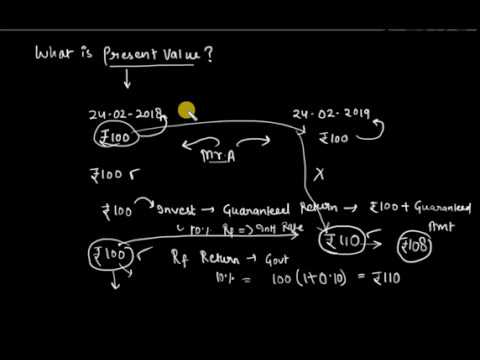 What is Present Value?
24-02-2018 24-02-2019
₹100 ₹100
Mr.A
₹100 X
₹100 Invest → Guaranteed Return → ₹100 + Guaranteed Amt
10% Rf => Int Rate
₹100 ₹110 → ₹108
Rf Return → Govt
10% = 100 (1+0.10) = ₹110